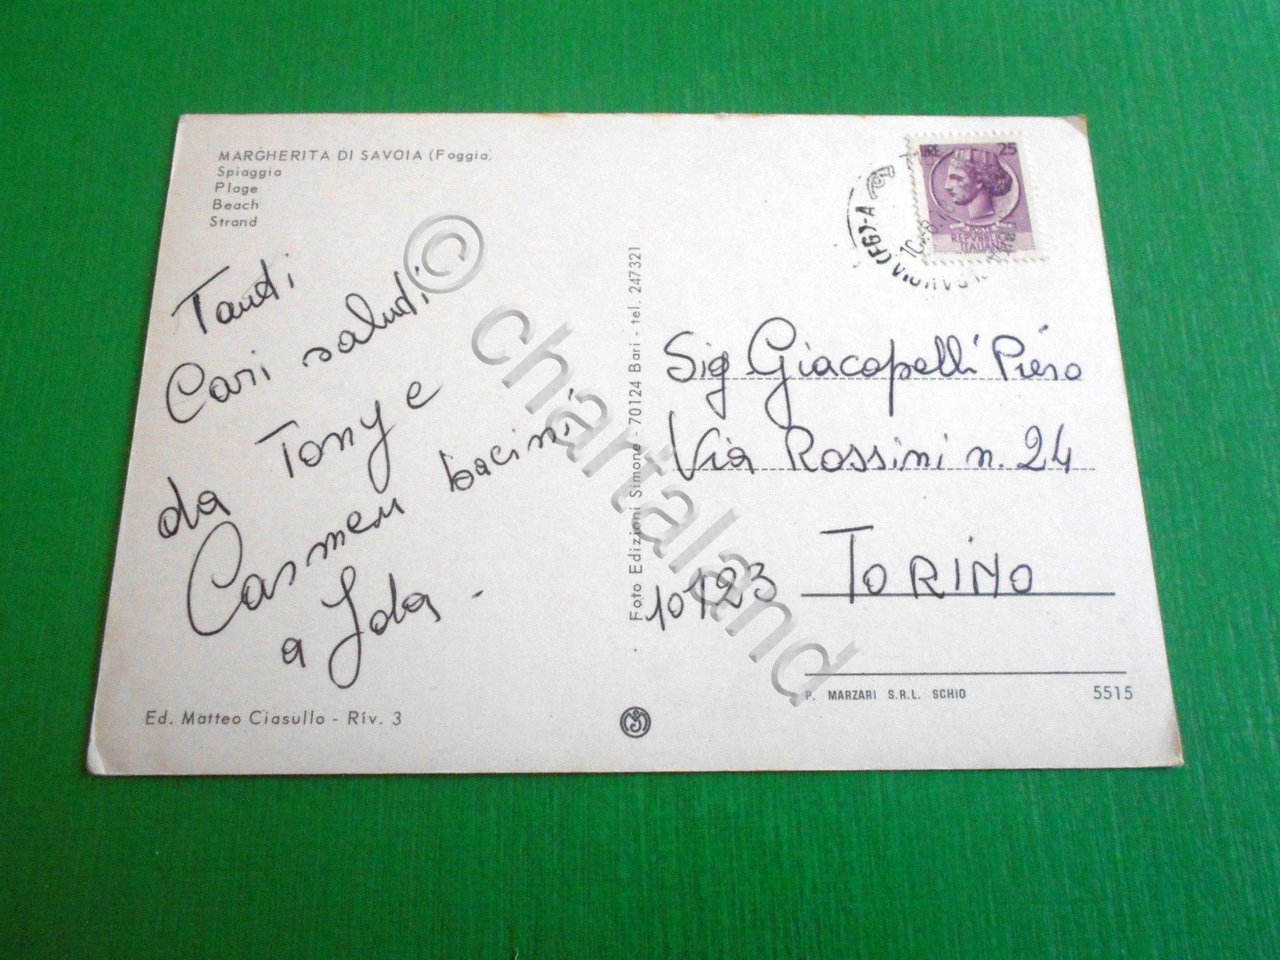 MARGHERITA DI SAVOIA (Foggia)
Spiaggia
Plage
Beach
Strand
Tanti
Cari saluti
da Tony e
Carmen bacini
a Ida -
Ed. Matteo Ciasullo - Riv. 3
Foto Edizioni Simone - 70124 Bari - tel. 247321
LIRE 25
REPVBBLICA
ITALIANA
SAVOIA (FG)-A
Sig Giacopelli Piero
Via Rossini n. 24
10123 TORINO
P. MARZARI S.R.L. SCHIO
5515
© chartaland